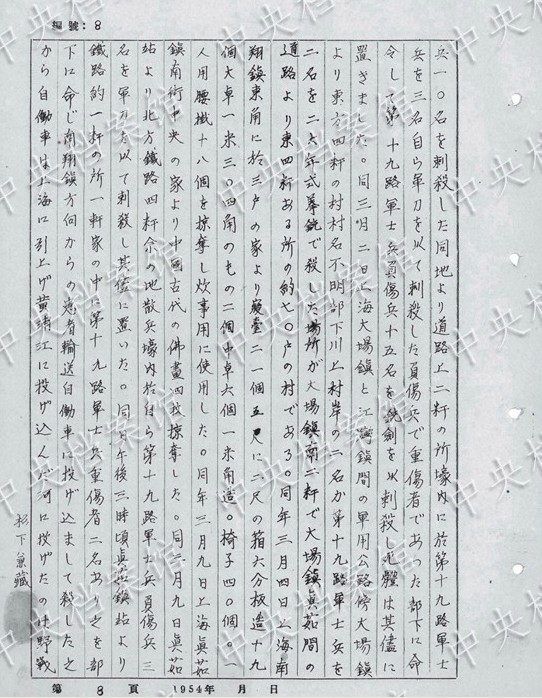 編號: 8
兵一〇名を刺殺した同地より道路上二粁の所壕内に於第十九路軍士
兵を三名自ら軍刀を以て刺殺した負傷兵で重傷者であった部下に命
令して第十九路軍士兵負傷兵十五名を銃剣を以刺殺し死體は其儘に
置きました。同三月二日上海大場鎮と江灣鎮間の軍用公路傍大場鎮
より東方四粁の村村名不明部下川上村岸の二名が第十九路軍士兵を
二名を二六年式拳銃で殺した場所が大場鎮南二粁で大場鎮真茹間の
道路より東四粁ある所の約七〇戸の村である。同年三月四日上海南
翔鎮東角に於三戸の家より寝臺二一個五尺に二尺の箱六分板造十九
個大卓一米三〇四角のもの二個中卓六個一米角造。椅子四〇個。一
人用腰掛十八個を掠奪し炊事用に使用した。同年三月九日上海真茹
鎮南街中央の家より中國古代の佛畫四枚掠奪した。同三月九日真茹
站より北方鐵路四粁余の地散兵壕内於自ら第十九路軍士兵負傷兵三
名を軍刀を以て刺殺し其儘に置いた。同日午後三時頃真茹鎮站より
鐵路約一粁の所一軒家の中に第十九路軍士兵重傷者二名あり之を部
下に命じ南翔鎮方向からの患者輸送自動車に投げ込まして殺した之
から自動車は上海に引上げ黄浦江に投げ込んだ河に投げたのは野戦
松下兼藏
第 8 頁 1954年 月 日
中央档案馆